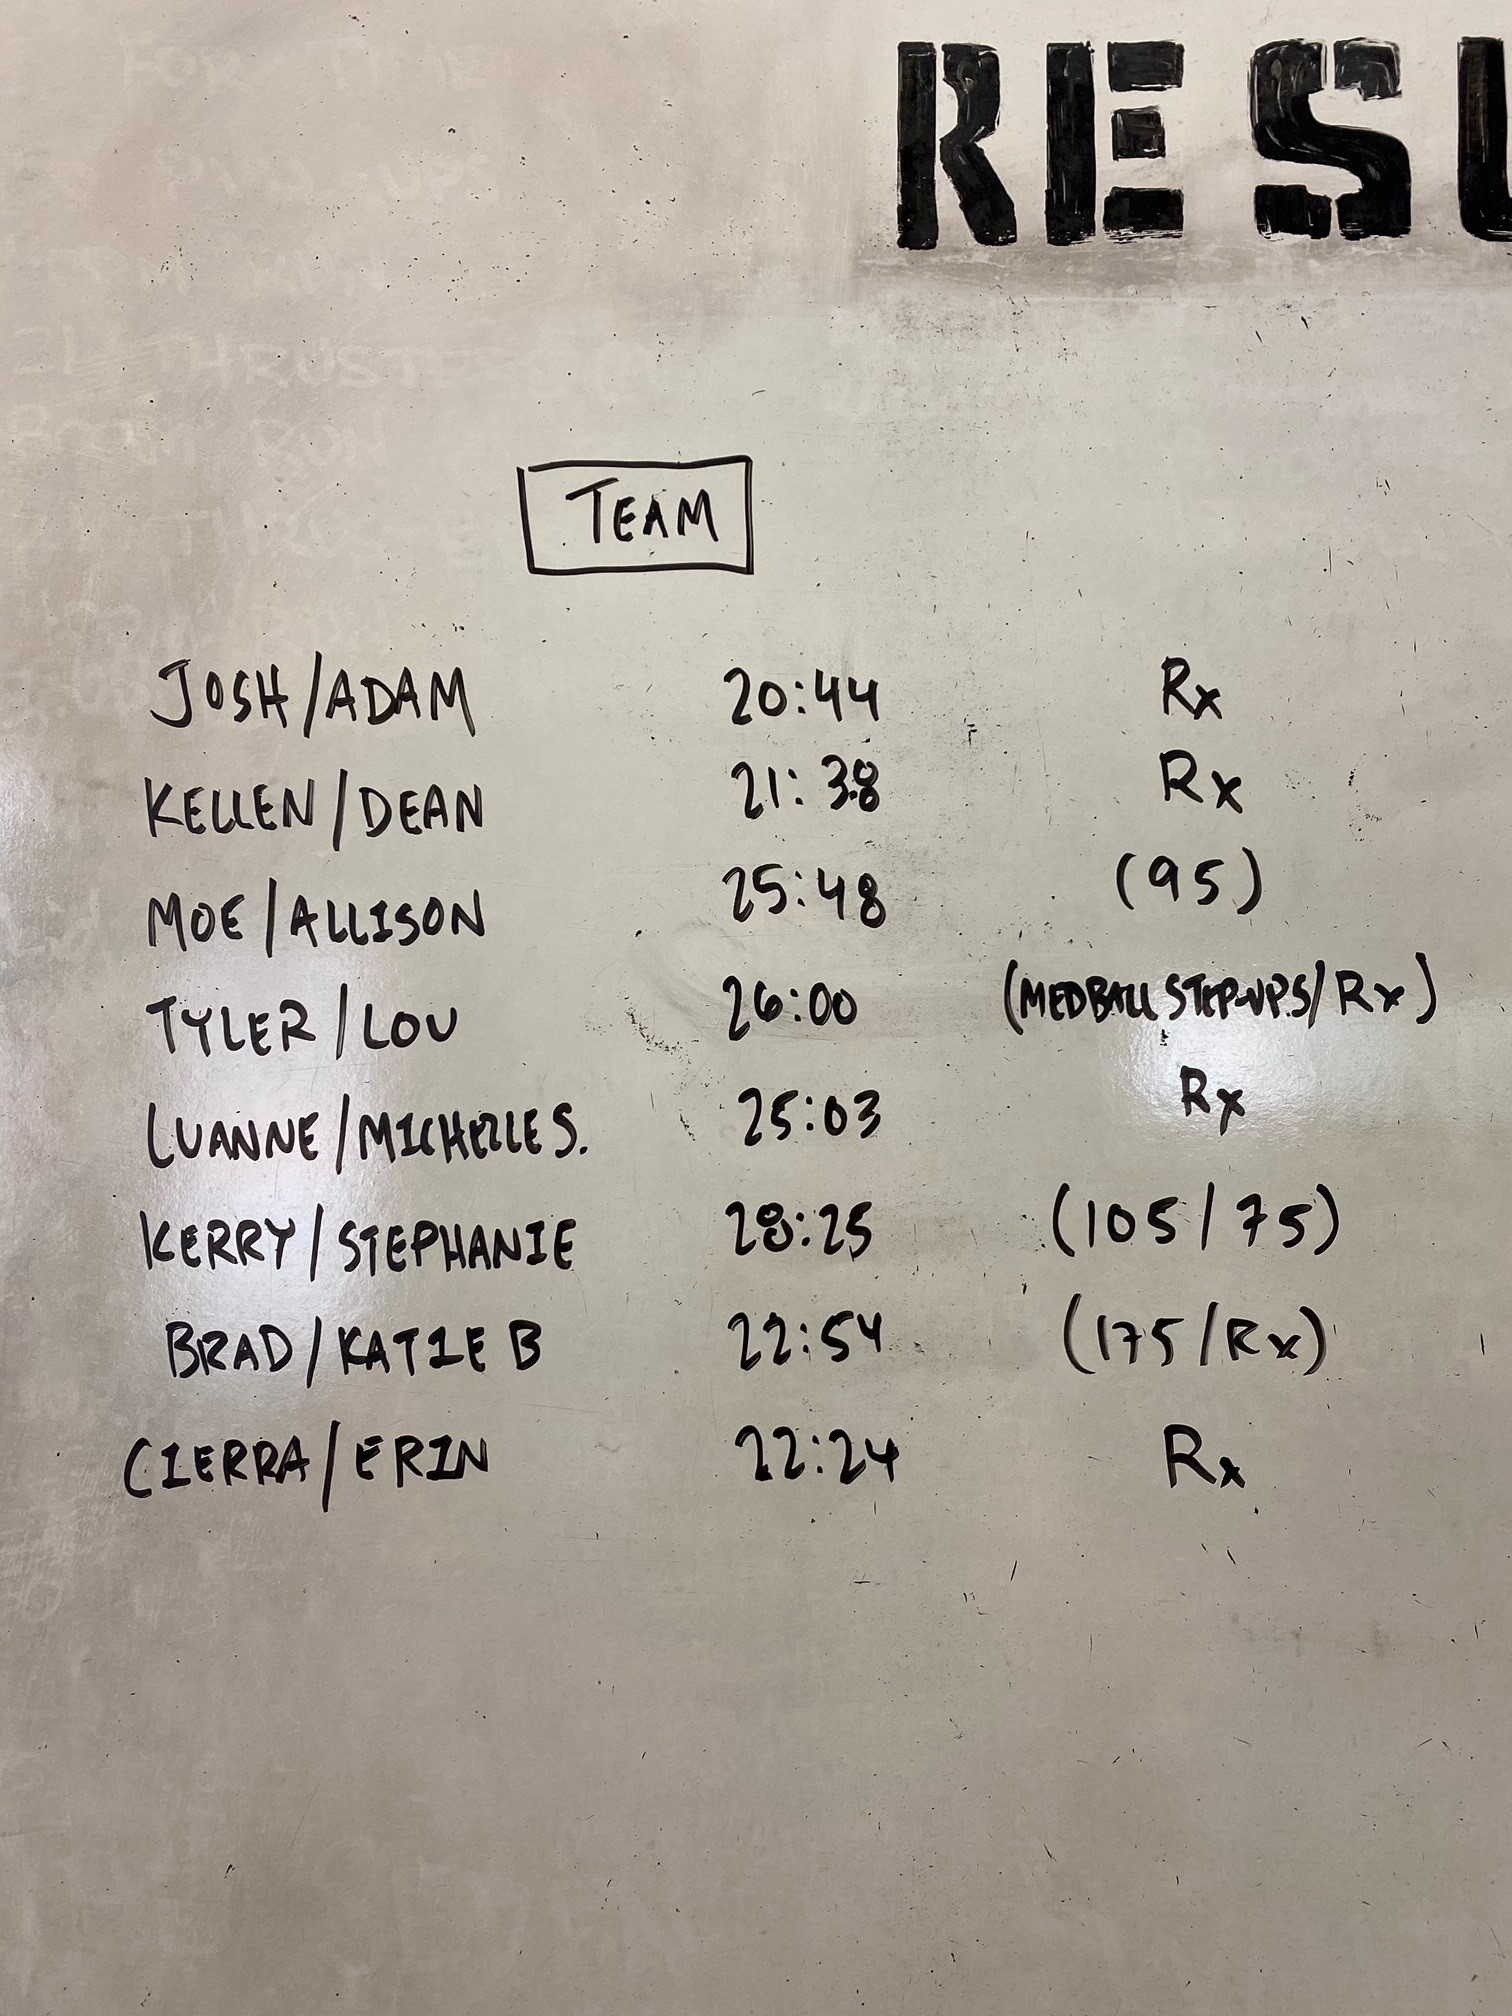 RESU
TEAM
JOSH/ADAM 20:44 Rx
KELLEN/DEAN 21:38 Rx
MOE/ALLISON 25:48 (95)
TYLER/LOU 26:00 (MEDBALL STEP-UPS/Rx)
LUANNE/MICHELLE S. 25:03 Rx
KERRY/STEPHANIE 28:25 (105/75)
BRAD/KATIE B 22:54 (175/Rx)
CIERRA/ERIN 22:24 Rx